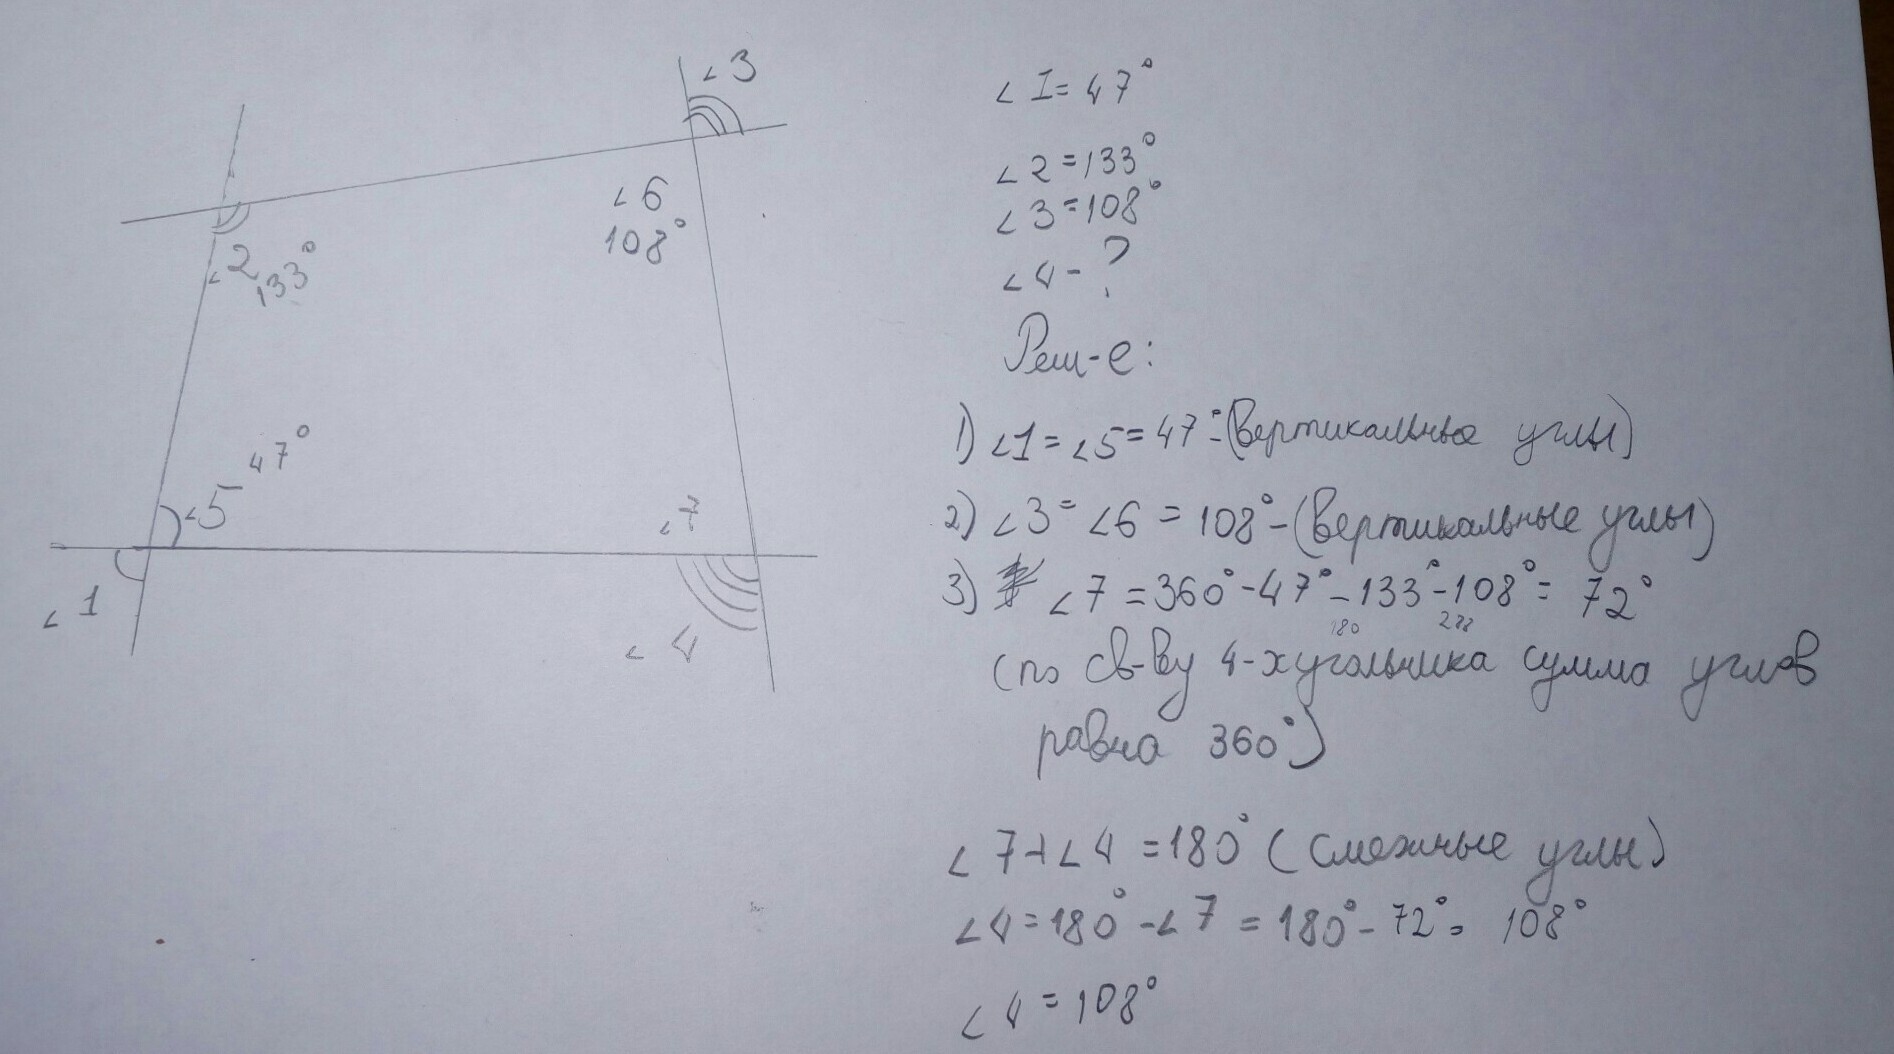 ∠3
∠6
108°
∠2
133°
47°
∠5
∠7
∠1
∠4
∠1=47°
∠2=133°
∠3=108°
∠4-?
Реш-е:
1) ∠1=∠5=47°-(вертикальные углы)
2) ∠3=∠6=108°-(вертикальные углы)
3) ∠7=360°-47°-133°-108°=72°
180
(по св-ву 4-хугольника сумма углов
равна 360°)
∠7+∠4=180° (смежные углы)
∠4=180°-∠7=180°-72°=108°
∠4=108°